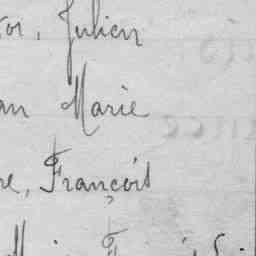 tor, Julien
an Marie
re, François